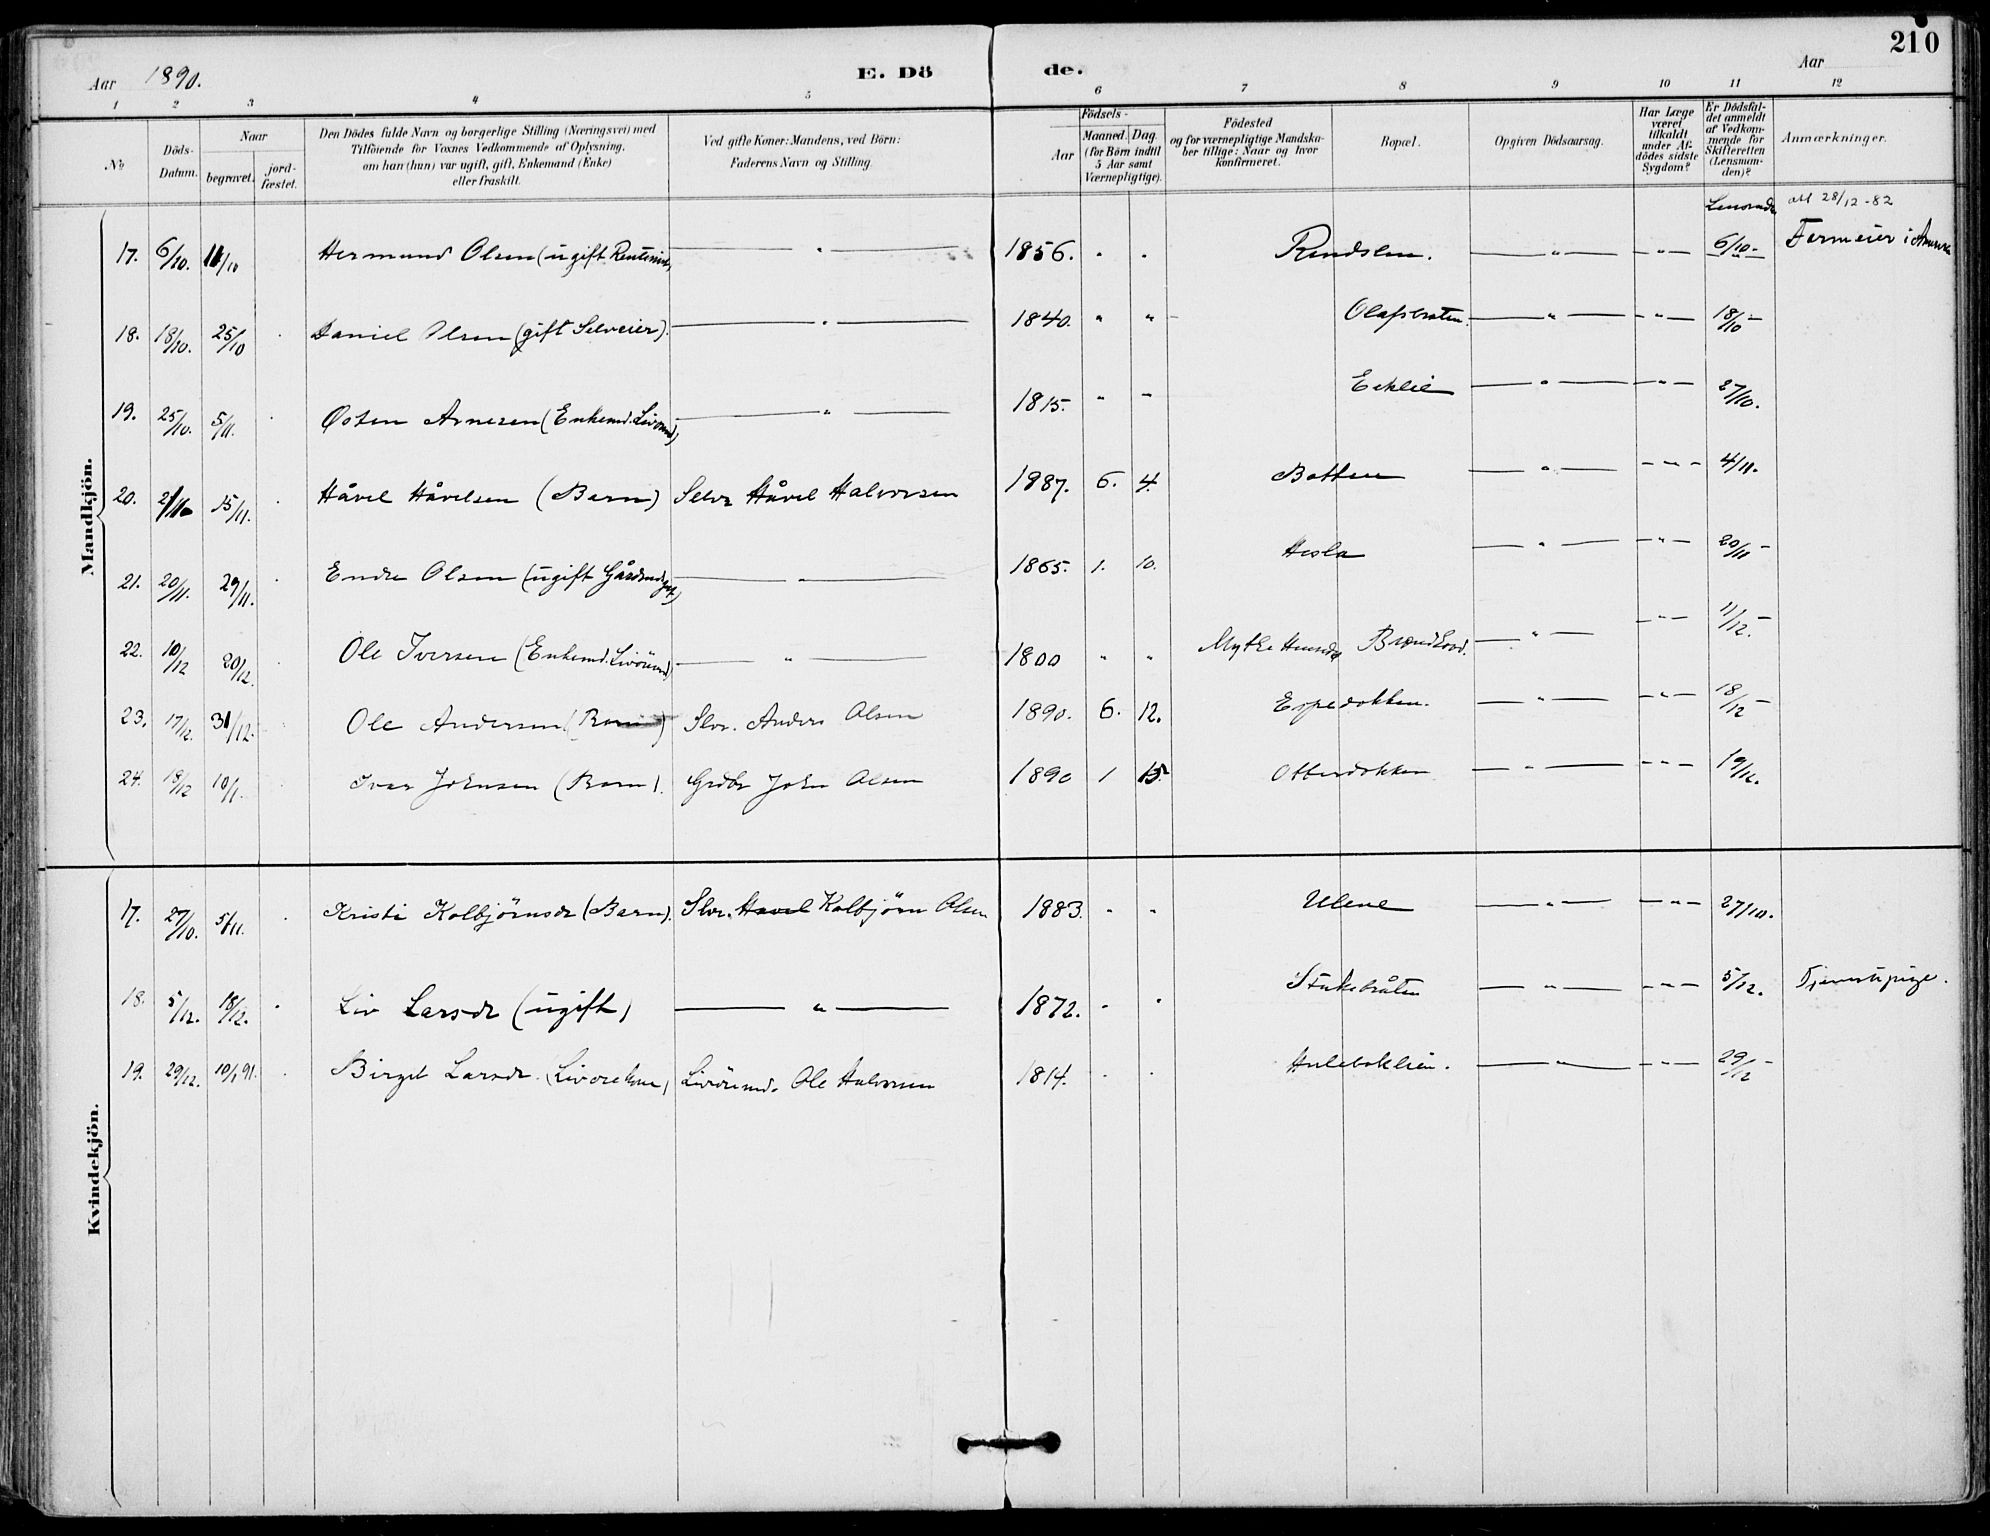 210
Aar 1890. E. Dö de. Aar
1 2 3 4 5 6 7 8 9 10 11 12
No Döds-Datum. Naar begravet. jord-fæstet. Den Dödes fulde Navn og borgerlige Stilling (Næringsvei) med Tilföiende for Voxnes Vedkommende af Oplysning, om han (hun) var ugift, gift, Enkemand (Enke) eller fraskilt. Ved gifte Koner: Mandens, ved Börn: Faderens Navn og Stilling. Födsels- Aar Maaned. Dag. (for Börn indtil 5 Aar samt Værnepligtige). Födested og for værnepligtige Mandskaber tillige: Naar og hvor konfirmeret. Bopæl. Opgiven Dödsaarsag. Har Læge været tilkaldt under Afdödes sidste Sygdom? Er Dödsfaldet anmeldt af Vedkommende for Skifteretten (Lensmanden)? Anmærkninger.
Mandkjön.
28/12-82
17. 6/10. 11/10 Hermund Olsen (ugift — " — 1856. " " — " — — " — 6/10- i
18. 18/10. 25/10 Daniel Olsen (gift Selveier). — " — 1840. " " — " — — " — 18/10-
19. 25/10. 5/11. Østen Arnesen (Enkemd. — " — 1815. " " Eklie — " — — " — 27/10.
20. 15/11. Håvel Håvelsen (Barn) Selvr Håvel Halvorsen 1887. 6. 4. Botten — " — — " — 4/11.
21. 20/11. 29/11. Endre Olsen (ugift — " — 1865. 1. 10. Hesla — " — — " — 20/11-
22. 10/12 20/12. Ole Iversen (Enkemd. — " — 1800 " " — " — — " — 11/12.-
23. 17/12. 31/12. Ole Andersen (Barn) Slvr. Anders Olsen 1890. 6. 12. Espedokken. — " — — " — 18/12-
24. 18/12 10/1. Ivar Johnsen (Barn). Grdbr John Olsen 1890 1 15. Otterdokken — " — — " — 19/12.
Kvindekjön.
17. 27/10. 5/11. Kristi Kolbjörnsdr (Barn). Slvr. Havel Kolbjörn Olsen 1883. " " Ulene — " — — " — 27/10.
18. 5/12. 18/12. Liv Larsdr (ugift) — " — 1872. " " Stukebråten — " — — " — 5/12. Tjenestepige.
19. 29/12. 10/1 91. Birgit Larsdr. Ole Halvorsen 1814. " " — " — — " — 29/12-